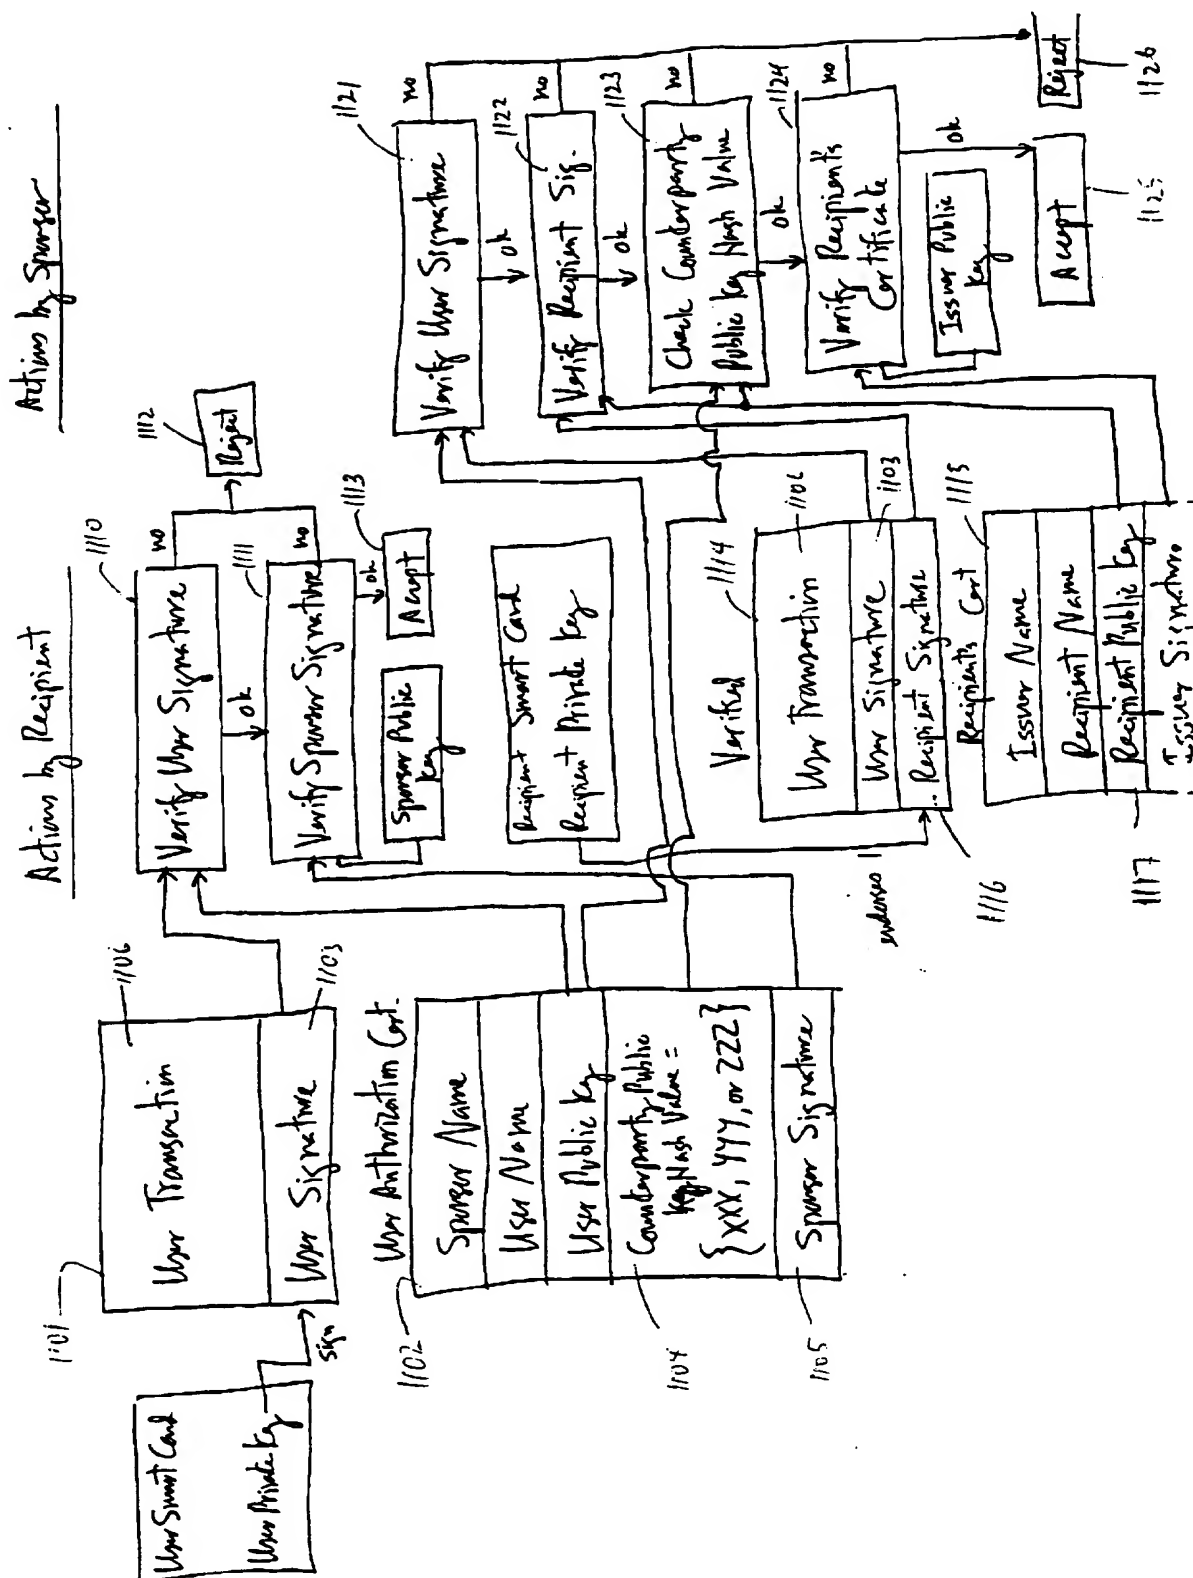 User Smart Card
User Private Key
sign
1101
User Transaction
1106
User Signature
1103
1102
User Authorization Cert.
Sponsor Name
User Name
User Public Key
1104
Counterparty Public
Key Hash Value =
{XXX, YYY, or ZZZ}
1105
Sponsor Signature
Actions by Recipient
1110
Verify User Signature
no
ok
1111
Verify Sponsor Signature
no
ok
1112
Reject
1113
Accept
Sponsor Public
Key
Recipient Smart Card
Recipient Private Key
endorses
Verified
1114
User Transaction
1106
User Signature
1103
Recipient Signature
1116
Recipients Cert
1115
Issuer Name
Recipient Name
Recipient Public Key
1117
Issuer Signature
Actions by Sponsor
1121
Verify User Signature
no
ok
1122
Verify Recipient Sig.
no
ok
1123
Check Counterparty
Public Key Hash Value
no
ok
1124
Verify Recipient's
Certificate
no
ok
Issuer Public
Key
Accept
1125
Reject
1126